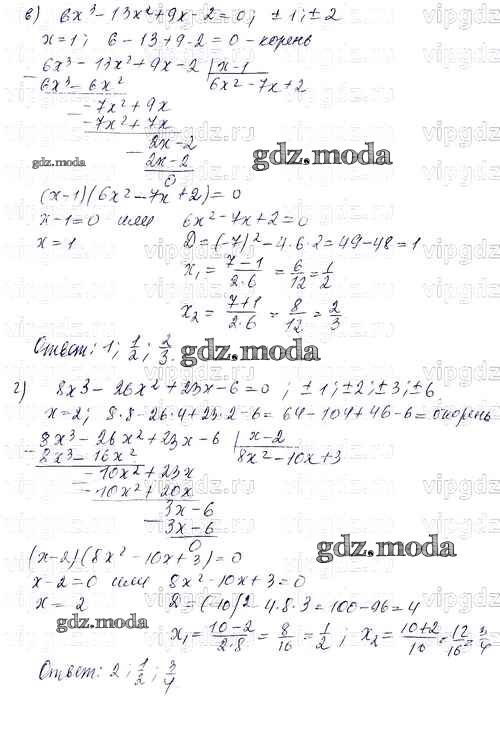 в) 6x³ - 13x² + 9x - 2 = 0; ±1; ±2
x = 1; 6 - 13 + 9 - 2 = 0 - корень
6x³ - 13x² + 9x - 2 | x - 1
6x³ - 6x² 6x² - 7x + 2
- 7x² + 9x
- 7x² + 7x
2x - 2
2x - 2
0
gdz.moda
gdz.moda
(x-1)(6x² - 7x + 2) = 0
x - 1 = 0 или 6x² - 7x + 2 = 0
x = 1 D = (-7)² - 4·6·2 = 49 - 48 = 1
x₁ = (7-1)/(2·6) = 6/12 = 1/2
x₂ = (7+1)/(2·6) = 8/12 = 2/3
Ответ: 1; 1/2; 2/3.
gdz.moda
г) 8x³ - 26x² + 23x - 6 = 0; ±1; ±2; ±3; ±6
x = 2; 8·8 - 26·4 + 23·2 - 6 = 64 - 104 + 46 - 6 = 0 корень
8x³ - 26x² + 23x - 6 | x - 2
8x³ - 16x² 8x² - 10x + 3
- 10x² + 23x
- 10x² + 20x
3x - 6
3x - 6
0
gdz.moda
(x-2)(8x² - 10x + 3) = 0
x - 2 = 0 или 8x² - 10x + 3 = 0
x = 2 D = (-10)² - 4·8·3 = 100 - 96 = 4
gdz.moda
x₁ = (10-2)/(2·8) = 8/16 = 1/2; x₂ = (10+2)/16 = 12/16 = 3/4
Ответ: 2; 1/2; 3/4
vipgdz.ru